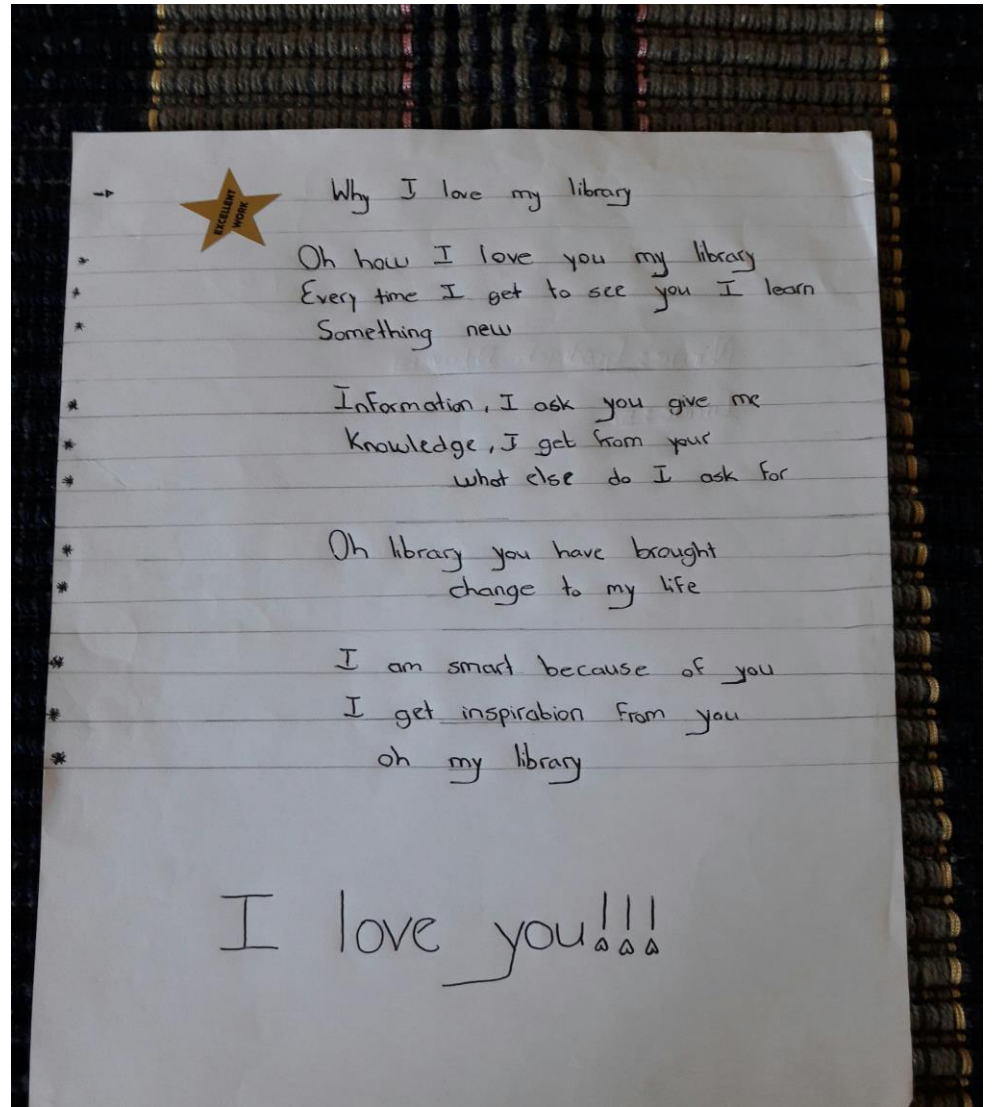 Why I love my library
EXCELLENT
WORK
Oh how I love you my library
Every time I get to see you I learn
Something new
Information, I ask you give me
Knowledge, I get from your
what else do I ask for
Oh library you have brought
change to my life
I am smart because of you
I get inspirabion from you
oh my library
I love you!!!